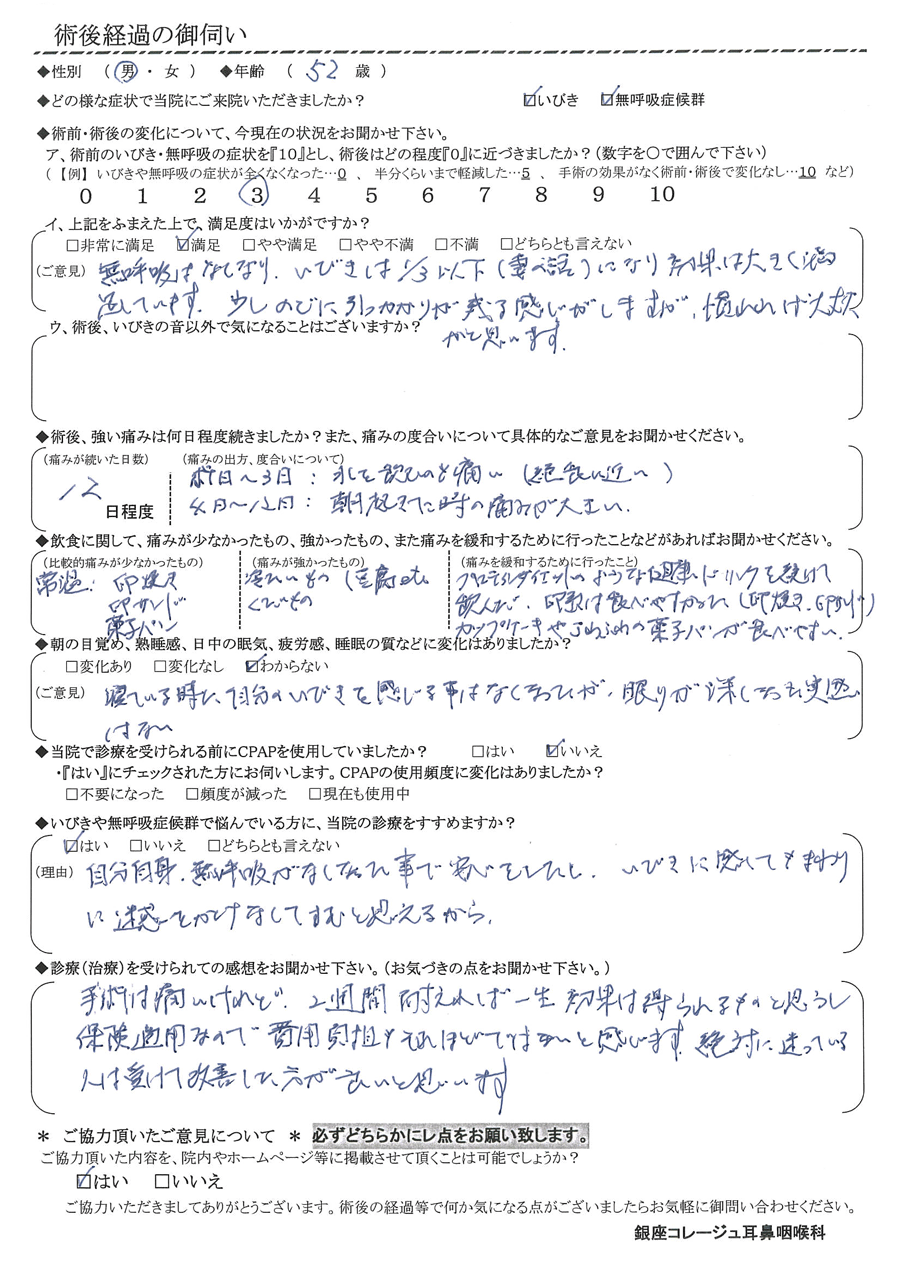 術後経過の御伺い
◆性別 ( 男 ・ 女 ) ◆年齢 ( 52 歳 )
◆どの様な症状で当院にご来院いただきましたか? ☑いびき ☑無呼吸症候群
◆術前・術後の変化について、今現在の状況をお聞かせ下さい。
ア、術前のいびき・無呼吸の症状を『10』とし、術後はどの程度『0』に近づきましたか?(数字を○で囲んで下さい)
(【例】いびきや無呼吸の症状が全くなくなった…0 、 半分くらいまで軽減した…5 、 手術の効果がなく術前・術後で変化なし…10 など)
0 1 2 3 4 5 6 7 8 9 10
イ、上記をふまえた上で、満足度はいかがですか?
□非常に満足 ☑満足 □やや満足 □やや不満 □不満 □どちらとも言えない
(ご意見) 無呼吸はなくなり、いびきは1/3以下(妻の話)になり効果は大きく満
足しています。少しのどに引っかかりが残る感じがしますが、慣れれば大丈夫
ウ、術後、いびきの音以外で気になることはございますか?
かと思います。
◆術後、強い痛みは何日程度続きましたか?また、痛みの度合いについて具体的なご意見をお聞かせください。
(痛みが続いた日数) (痛みの出方、度合いについて)
12 日程度
日~3日: 水を飲むのも痛い (絶食に近い)
4日~12日: 朝起きた時の痛みが大きい.
◆飲食に関して、痛みが少なかったもの、強かったもの、また痛みを緩和するために行ったことなどがあればお聞かせください。
(比較的痛みが少なかったもの) (痛みが強かったもの) (痛みを緩和するために行ったこと)
常温: 卵焼き
卵サンド
菓子パン
冷たいもの (豆腐も)
プロテインダイエットのような ドリンクを
飲んだ. 卵類は食べやすかった (卵焼き、卵サンド)
カップケーキやふわふわの菓子パンが食べやすい.
◆朝の目覚め、熟睡感、日中の眠気、疲労感、睡眠の質などに変化はありましたか?
□変化あり □変化なし ☑わからない
(ご意見) 寝ている時に自分のいびきを感じる事はなくなったが、眠りが深くなった実感
はない
◆当院で診療を受けられる前にCPAPを使用していましたか? □はい ☑いいえ
・『はい』にチェックされた方にお伺いします。CPAPの使用頻度に変化はありましたか?
□不要になった □頻度が減った □現在も使用中
◆いびきや無呼吸症候群で悩んでいる方に、当院の診療をすすめますか?
☑はい □いいえ □どちらとも言えない
(理由) 自分自身、無呼吸がなくなった事で安心をしたし、いびきに関しても
に迷惑をかけなくてすむと思えるから.
◆診療(治療)を受けられての感想をお聞かせ下さい。(お気づきの点をお聞かせ下さい。)
手術は痛いけれど、2週間耐えれば一生効果は得られるものと思うし
保険適用なので費用負担もそれほどではないと感じます。絶対に迷っている
人は受けて改善した方がよいと思います
* ご協力頂いたご意見について * 必ずどちらかにレ点をお願い致します。
ご協力頂いた内容を、院内やホームページ等に掲載させて頂くことは可能でしょうか?
☑はい □いいえ
ご協力いただきましてありがとうございます。術後の経過等で何か気になる点がございましたらお気軽に御問い合わせください。
銀座コレージュ耳鼻咽喉科